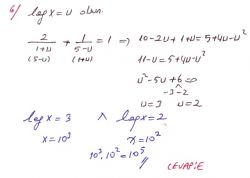 6/ logx = u olsun
2/(1+u) + 1/(5-u) = 1 ⇒ 10-2u+1+u = 5+4u-u²
(5-u) (1+u)
11-u = 5+4u-u²
u²-5u+6=0
-3 -2
u=3 u=2
logx=3 ∧ logx=2
x=10³ x=10²
10³.10²=10⁵
CEVAP: E